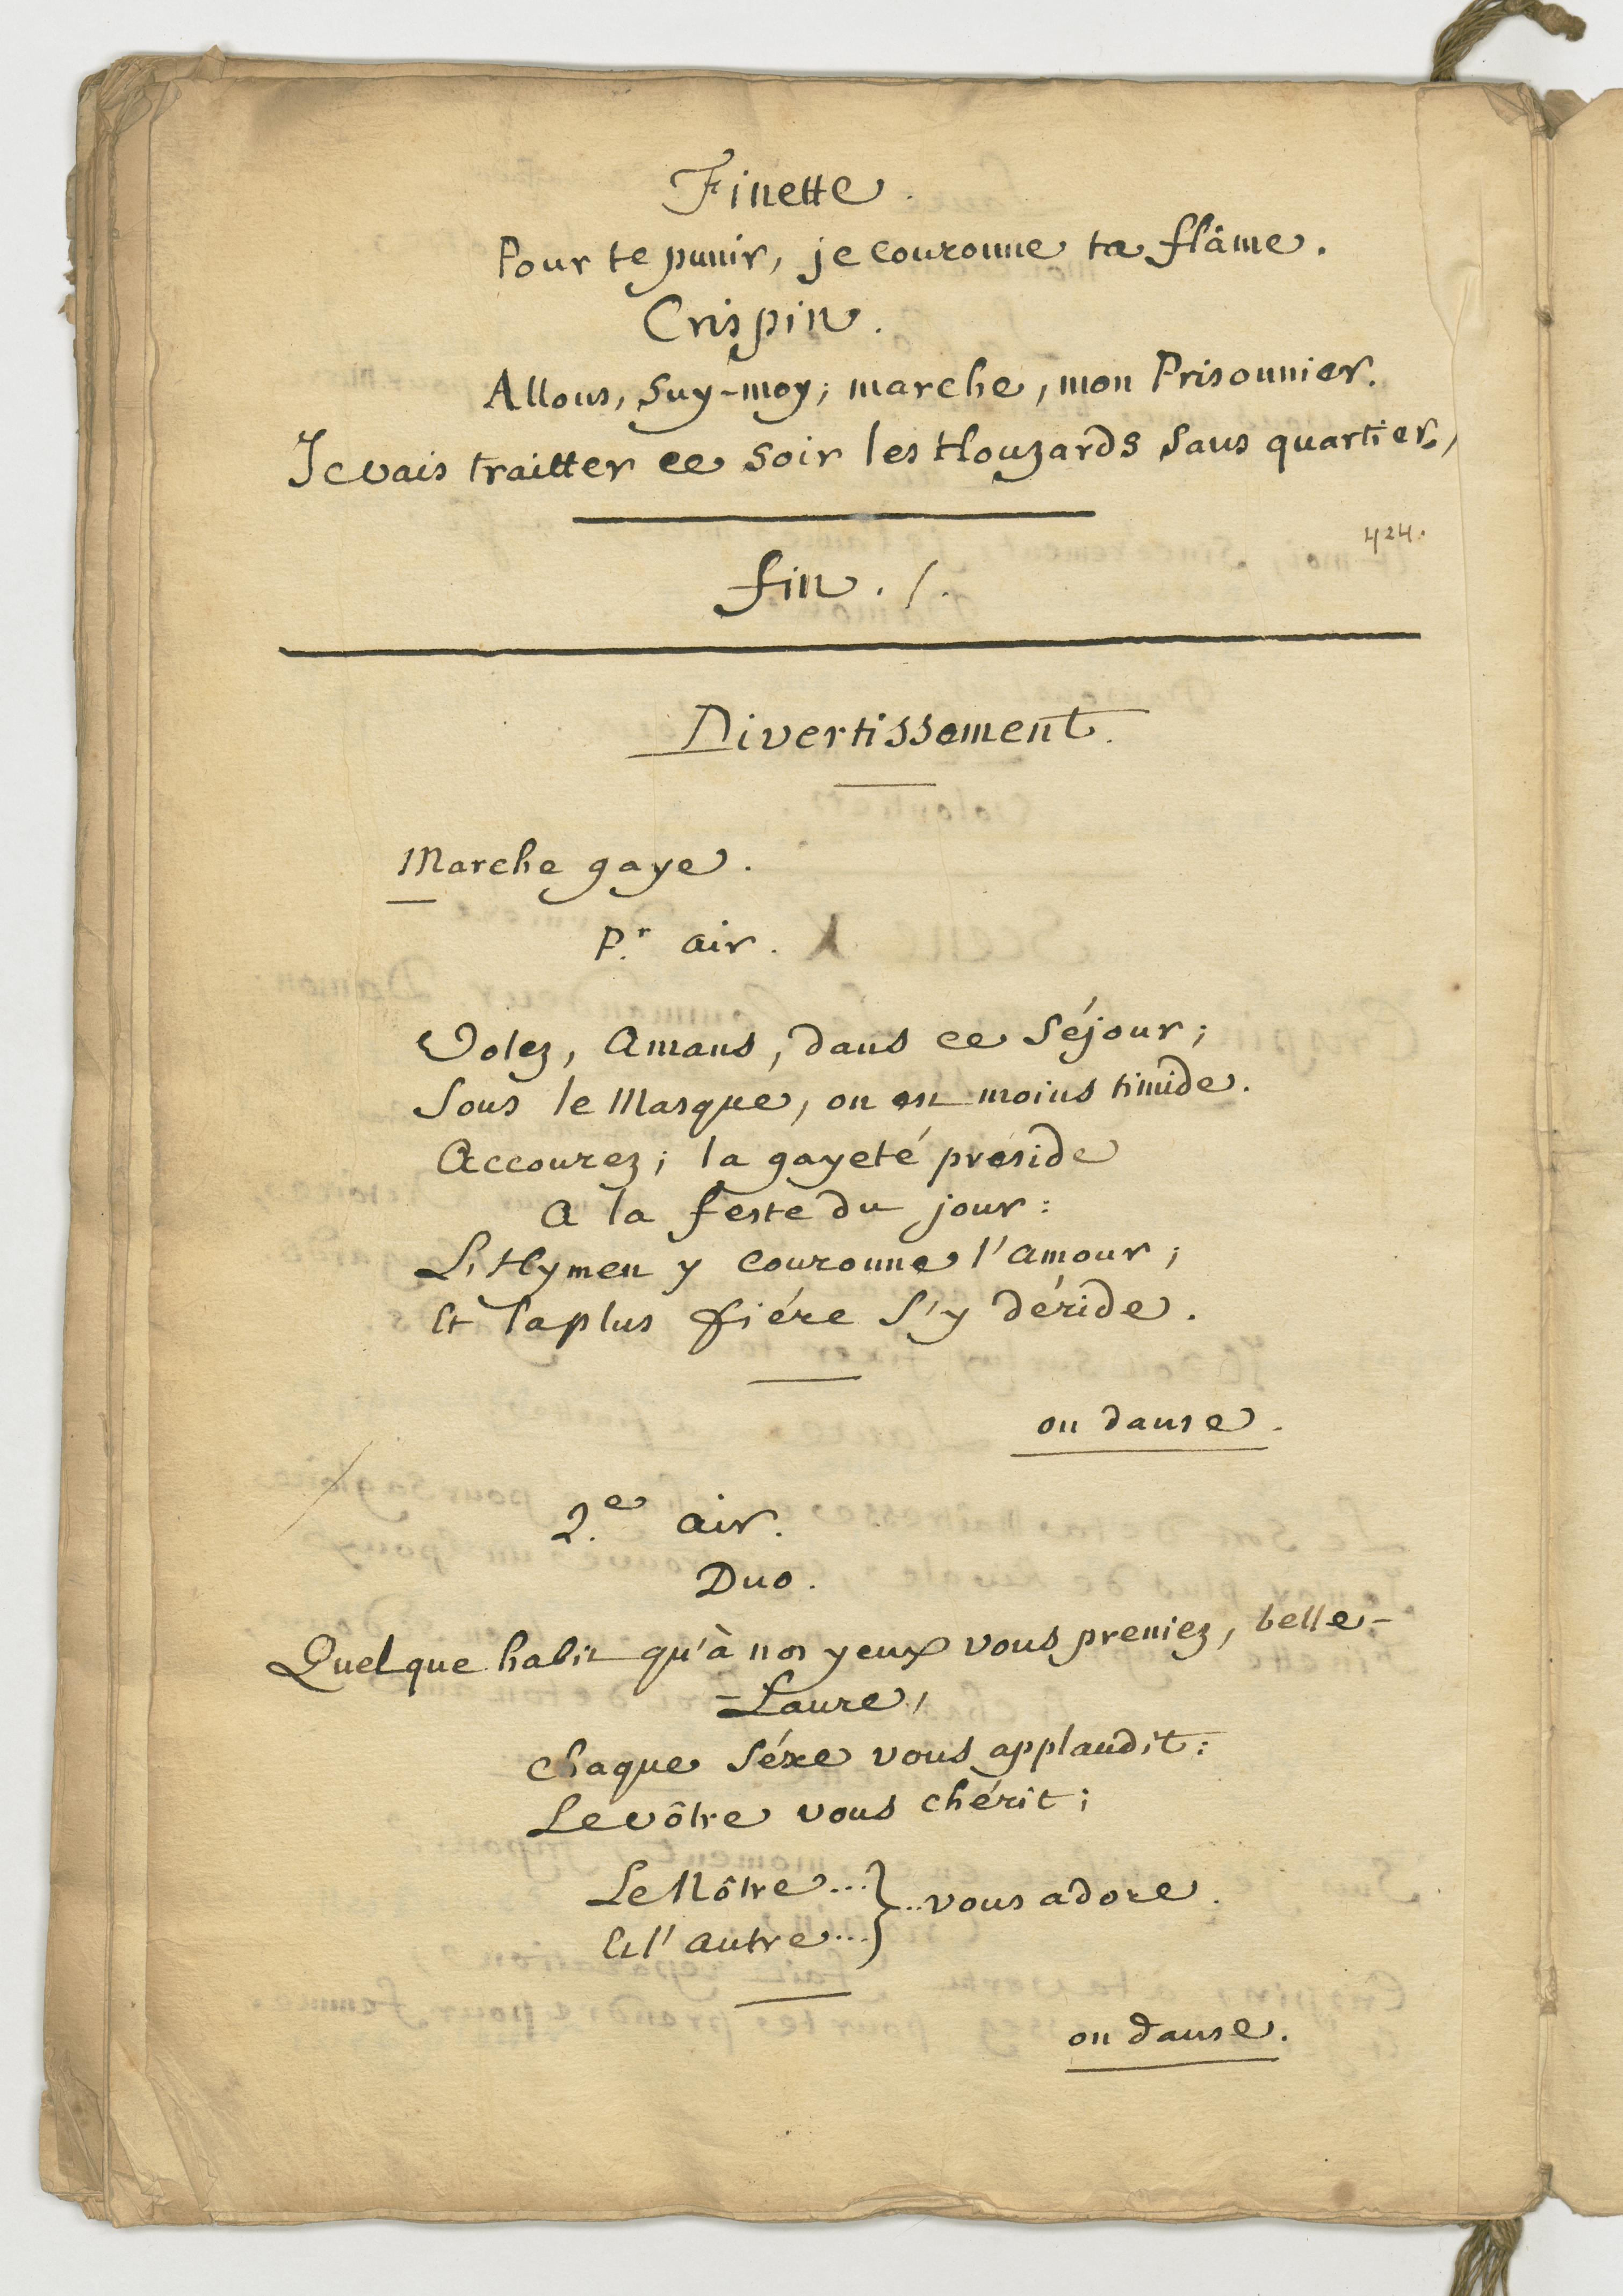 Finette.
Pour te punir, je couronne ta flâme.
Crispin.
Allons, suy-moy; marche, mon Prisonnier.
Je vais traitter ce soir les Houzards sans quartier,
424.
fin. /.
Divertissement.
Marche gaye.
P.r air.
Volez, Amans, dans ce séjour;
Sous le Masque, on est moins timide.
Accourez; la gayeté préside
A la feste du jour:
L'Hymen y couronne l'amour;
Et la plus fiére s'y déride.
on danse.
2.e air.
Duo.
Quelque habit qu'à nos yeux vous preniez, belle-
=Laure,
chaque séxe vous applaudit:
Le vôtre vous chérit;
Le Nôtre...
Et l'autre... } ..vous adore.
on danse.